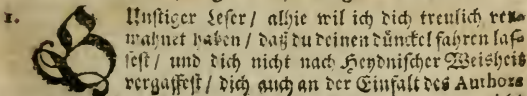 1. GUnſtiger Leſer / alhie wil ich dich treulich ver⸗
mahnet haben / daß du deinen dünckel fahren laſ⸗
ſeſt / und dich nicht nach Heydniſcher Weisheit
vergaffeſt / dich auch an der Einfalt des Authors